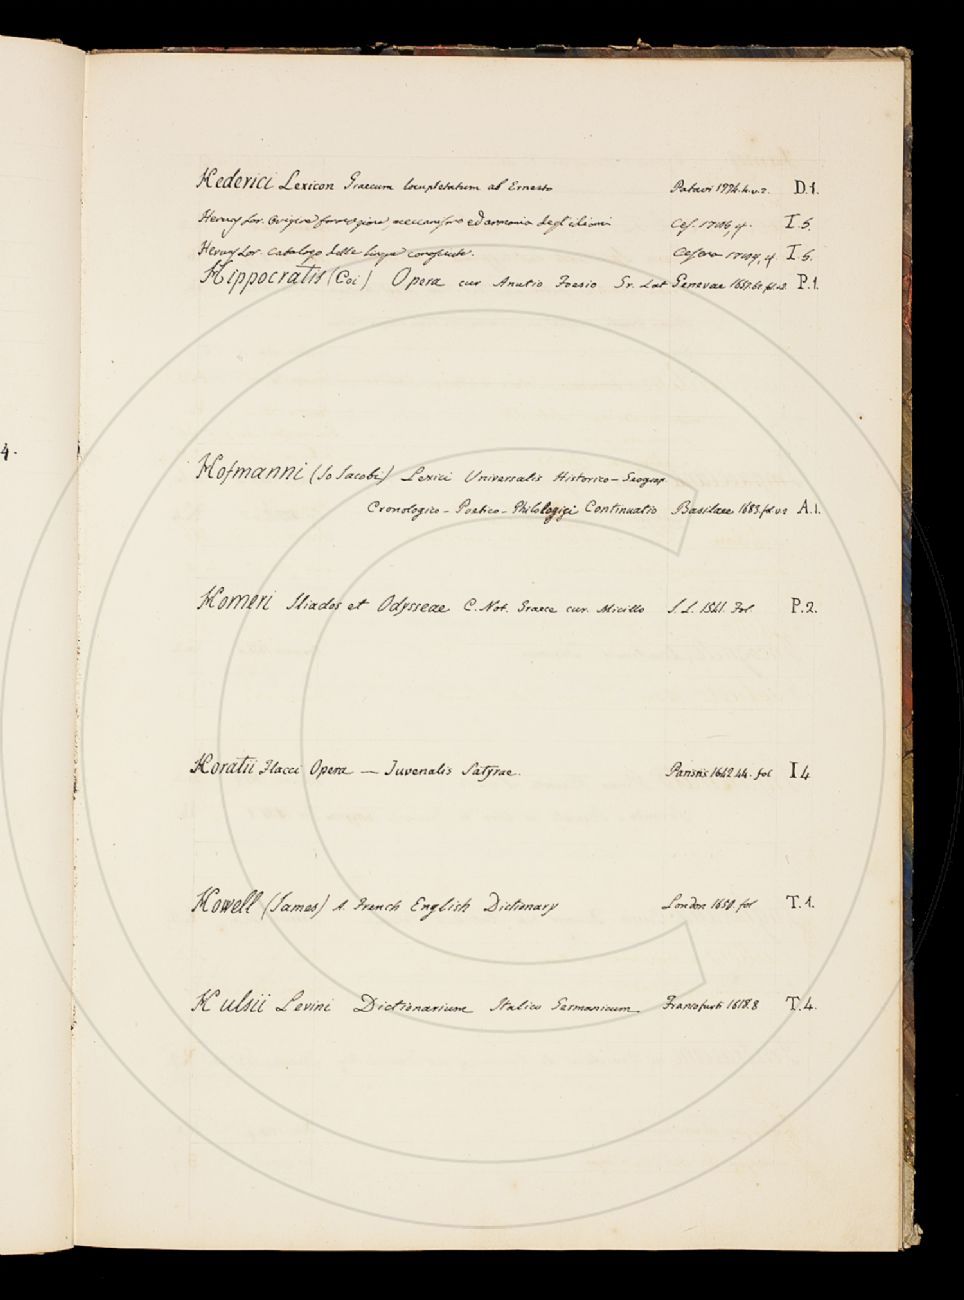 4.
Hederici Lexicon Graecum locupletatum ab Ernesto Patavi 1774. 4. v. 2. D.1.
Hervas Lor. Origine formazione, meccanismo ed armonia degl'idiomi Ces. 1785, 4. I.5.
Hervas Lor. Catalogo delle lingue conosciute. Cesena 1784, 4. I.5.
Hippocratis (Coi) Opera cur Anutio Foesio Gr. Lat Genevae 1657. P.1.
Hofmanni (Jo Jacobi) Lexici Universalis Historico-Geograp
Cronologico-Poetico-Philologici Continuatio Basileae 1683. fol v 2 A.1.
Homeri Iliados et Odysseae C. Not. Graece cur. Micillo S. L. 1541. Fol P.2.
Horatii Flacci Opera — Juvenalis Satyrae. Parisiis 1642.44. fol I 4
Howell (James) A. French English Dictionary London 1650. fol T.1.
Hulsii Levini Dictionarium Italico Germanicum. Francofurti 1618. 8 T.4.